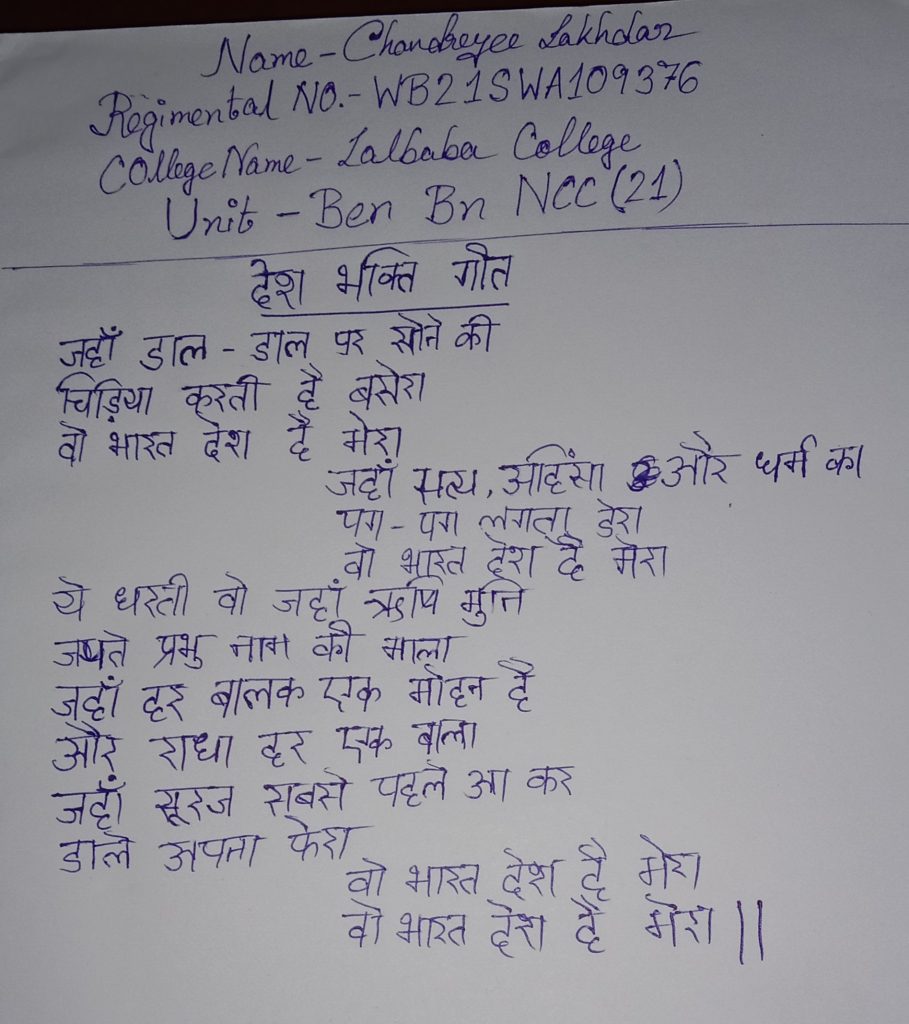 Name - Chandreyee Lakhdar
Regimental NO.- WB21SWA109376
College Name - Lalbaba College
Unit - Ben Bn NCC (21)
देश भक्ति गीत
जहाँ डाल - डाल पर सोने की
चिड़िया करती है बसेरा
वो भारत देश है मेरा
जहाँ सत्य, अहिंसा और धर्म का
पग - पग लगता डेरा
वो भारत देश है मेरा
ये धरती वो जहाँ ऋषि मुनि
जपते प्रभु नाम की माला
जहाँ हर बालक एक मोहन है
और राधा हर एक बाला
जहाँ सूरज सबसे पहले आ कर
डाले अपना फेरा
वो भारत देश है मेरा
वो भारत देश है मेरा ||